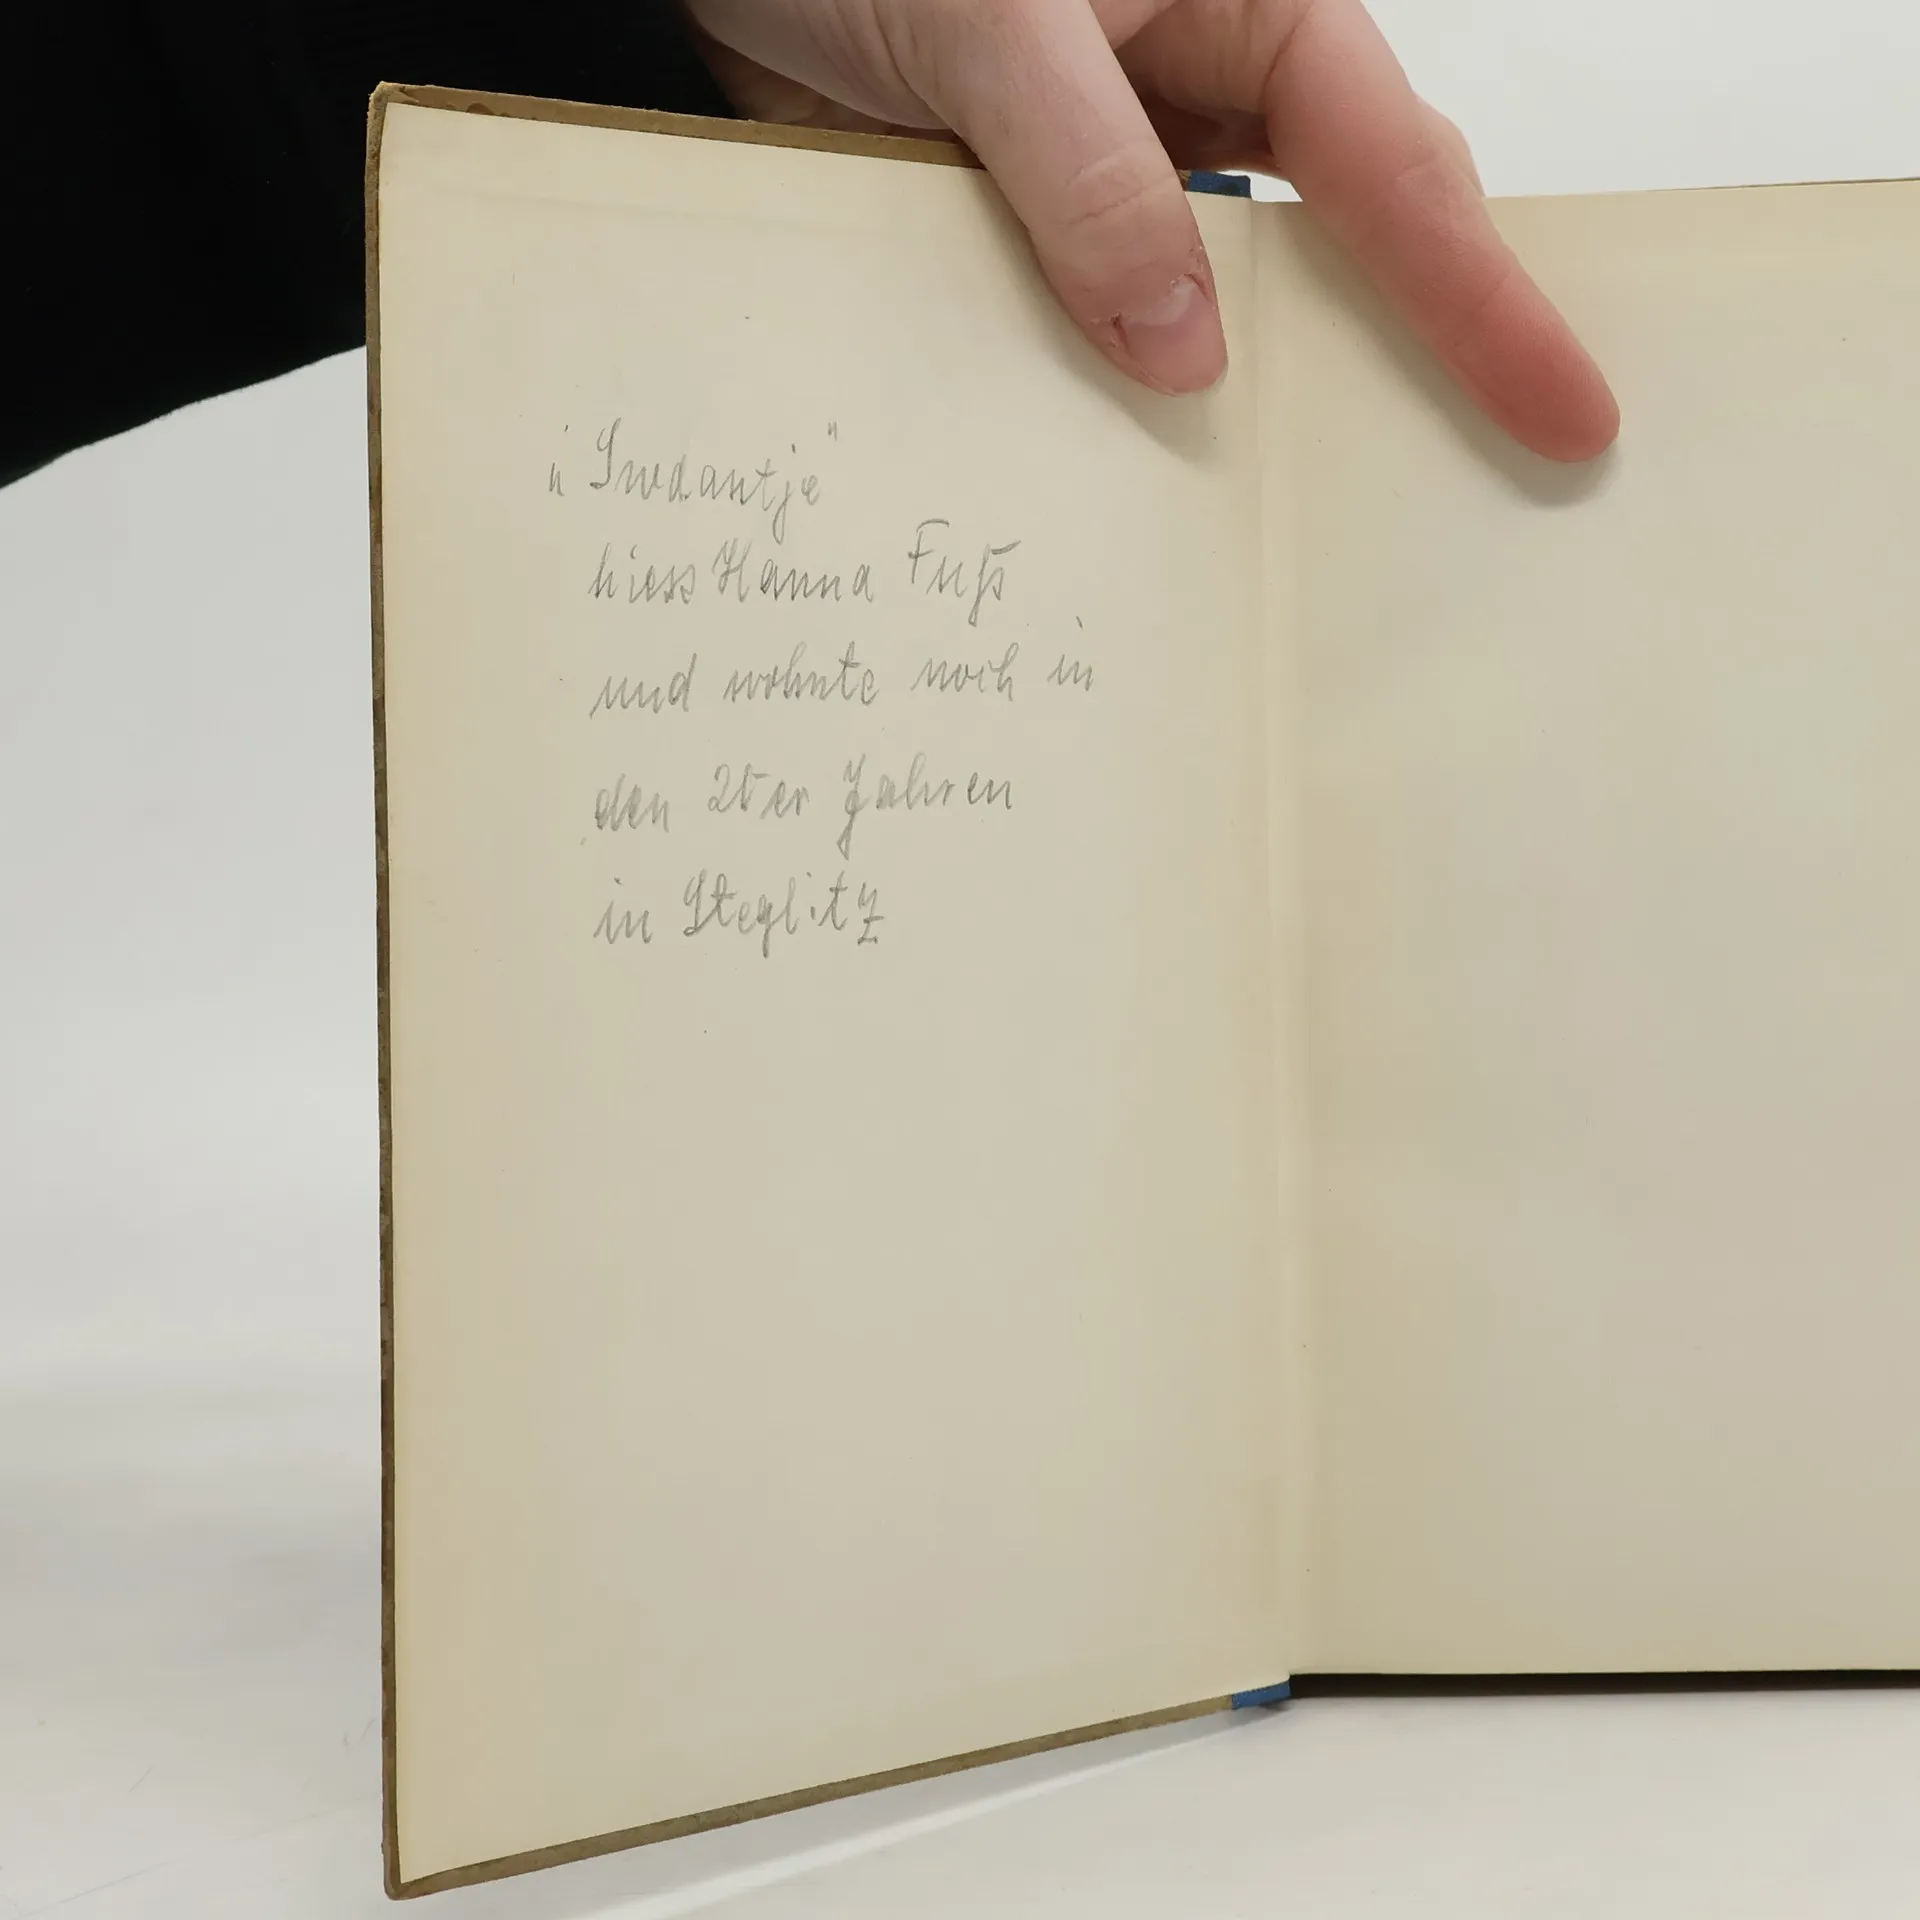 „Swaantje"
hiess Hanna Fuß
und wohnte noch in
den 20er Jahren
in Steglitz